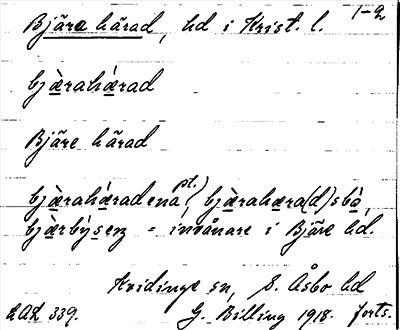 1-2
Bjäre härad, hd i Krist. l.
bjæ̀rahǽrad
Bjäre härad
bjæ̀rahǽradena (pl.) bjæ̀rahæra(d)sbo,
bjæ̀rbýsen = invånare i Bjäre hd.
Kvidinge sn, S. Åsbo hd
LAL 339. G. Billing 1918. forts.